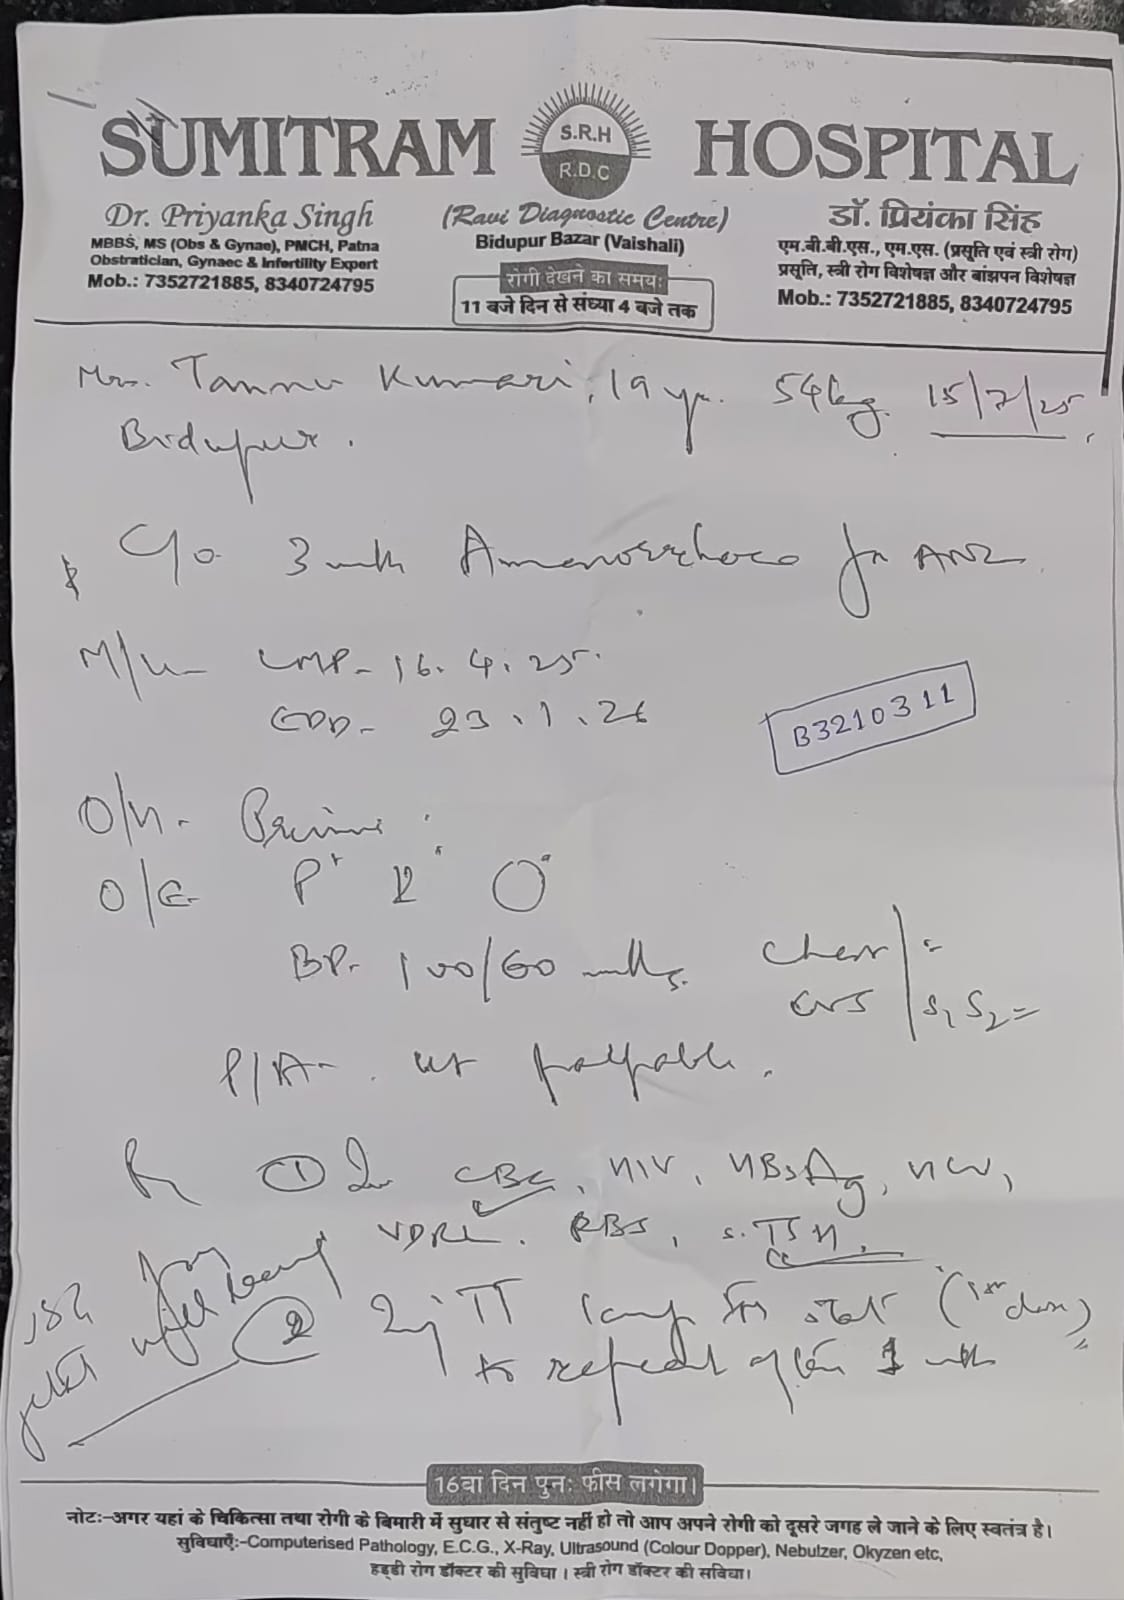 SUMITRAM HOSPITAL
S.R.H
R.D.C
Dr. Priyanka Singh
MBBS, MS (Obs & Gynae), PMCH, Patna
Obstratician, Gynaec & Infertility Expert
Mob.: 7352721885, 8340724795
(Ravi Diagnostic Centre)
Bidupur Bazar (Vaishali)
रोगी देखने का समयः
11 बजे दिन से संध्या 4 बजे तक
डॉ. प्रियंका सिंह
एम.बी.बी.एस., एम.एस. (प्रसूति एवं स्त्री रोग)
प्रसूति, स्त्री रोग विशेषज्ञ और बांझपन विशेषज्ञ
Mob.: 7352721885, 8340724795
Mrs. Tannu Kumari, 19 yr. 54kg 15/7/25
Bidupur.
C/o 3 mth Amenorrhoea for ANC
M/H LMP- 16.4.25.
EDD- 23.1.26
B3210311
O/H- Primi
O/E- P+
BP- 100/60 mmHg.
Chest
CVS S1 S2
P/A- ut palpable.
Rx ① CBC, HIV, HBsAg, HCV,
VDRL. RBS, S.TSH.
② Inj TT IM stat (1st dose)
to repeat after 1 mth
16वां दिन पुनः फीस लगेगा।
नोटः-अगर यहां के चिकित्सा तथा रोगी के बिमारी में सुधार से संतुष्ट नहीं हो तो आप अपने रोगी को दूसरे जगह ले जाने के लिए स्वतंत्र है।
सुविधाएँः-Computerised Pathology, E.C.G., X-Ray, Ultrasound (Colour Dopper), Nebulzer, Okyzen etc,
हड्डी रोग डॉक्टर की सुविधा । स्त्री रोग डॉक्टर की सविधा।